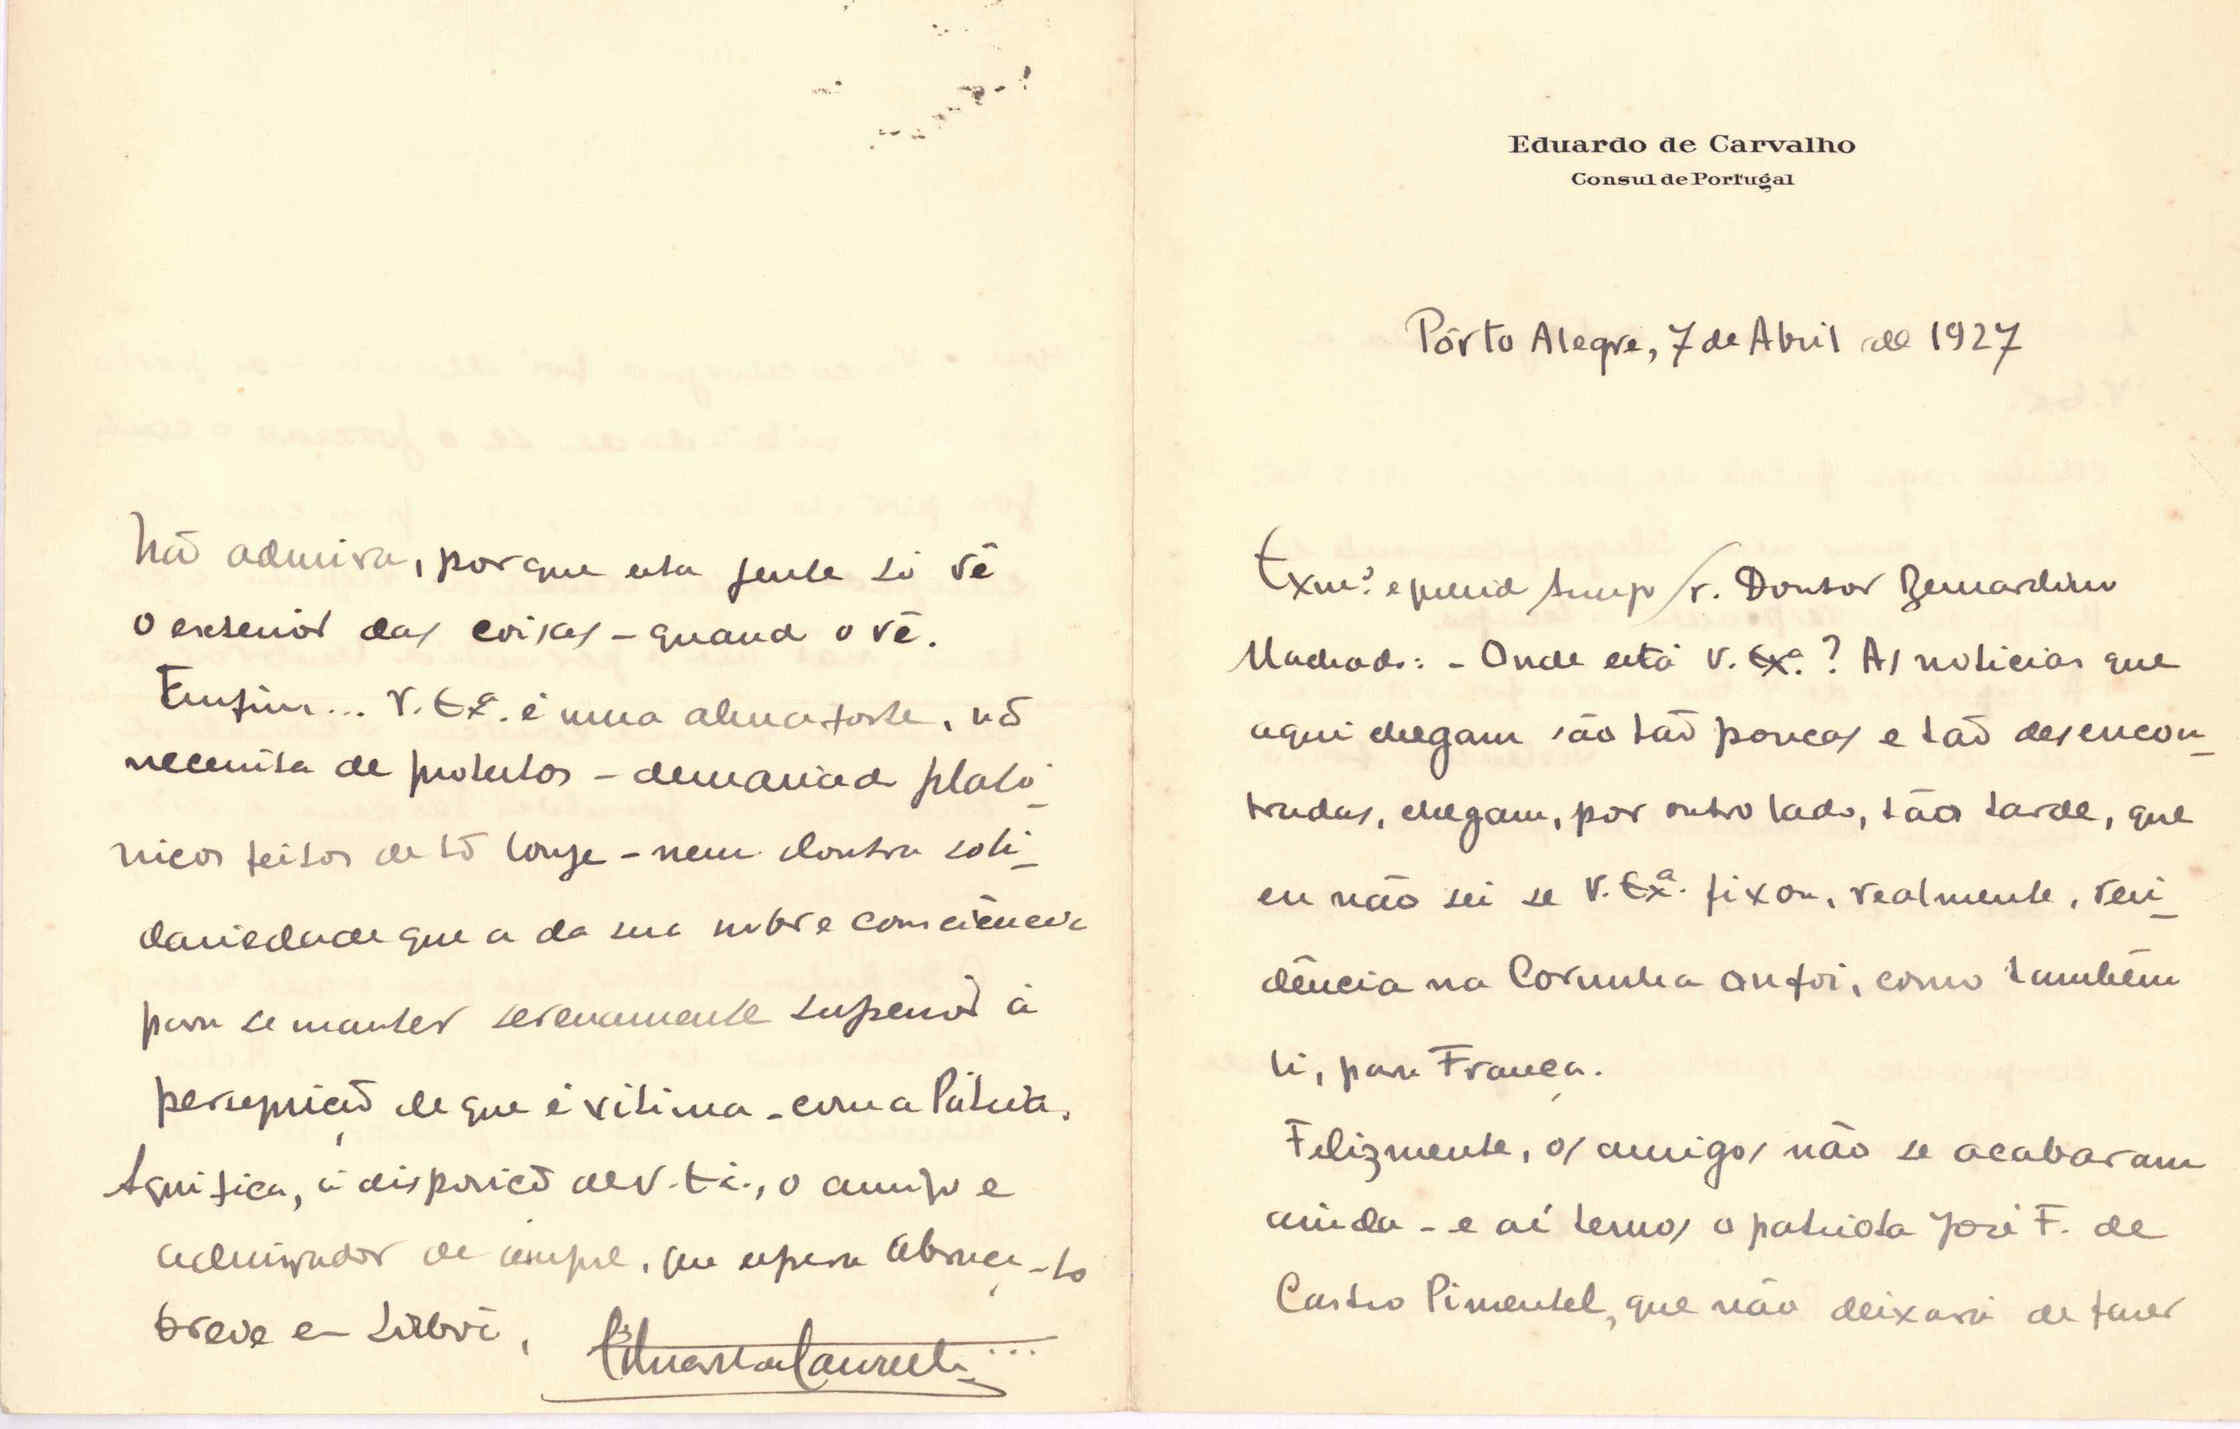 Eduardo de Carvalho
Consul de Portugal
Pôrto Alegre, 7 de Abril de 1927
Exmº. e Sr. Doutor Bernardino
Machado: - Onde está V. Exª.? As noticias que
aqui chegam são tão poucas e tão desencon-
tradas, chegam, por outro lado, tão tarde, que
eu não sei se V. Exª. fixou, realmente, resi-
dência na Corunha ou foi, como também
li, para França.
Felizmente, os amigos não se acabaram
ainda - e aí temos o patriota José F. de
Castro Pimentel, que não deixará de fazer
Não admira, porque esta gente só vê
o exterior das coisas - quando o vê.
Emfim... V. Exª. é uma alma forte, nõ
necessita de protestos - demasiado plató-
nicos feitos de tõ longe - nem doutra soli-
dariedade que a da sua nobre consciência
para se manter serenamente superior à
perseguição de que é vitima - com a Pátria.
Aqui fica, à disposição de V. Exa., o amigo e
admirador de sempre, que espera abraça-lo
breve em Lisboa,
Eduardo Carvalho